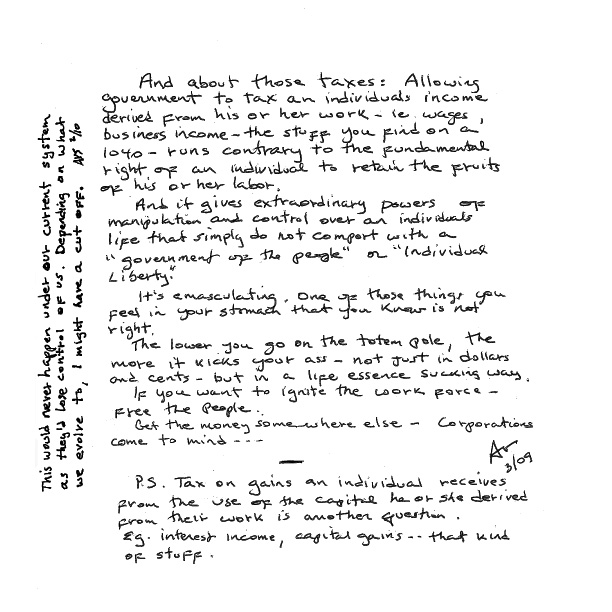 And about those taxes: Allowing
government to tax an individuals income
derived from his or her work - ie. wages,
business income - the stuff you find on a
1040 - runs contrary to the fundamental
right of an individual to retain the fruits
of his or her labor.
And it gives extraordinary powers of
manipulation and control over an individuals
life that simply do not comport with a
"government of the people" or "Individual
Liberty."
It's emasculating. One of those things you
feel in your stomach that you know is not
right.
The lower you go on the totem pole, the
more it kicks your ass - not just in dollars
and cents - but in a life essence sucking way.
If you want to ignite the work force -
Free the People.
Get the money somewhere else - Corporations
come to mind ---
3/09
P.S. Tax on gains an individual receives
from the use of the capital he or she derived
from their work is another question.
Eg. interest income, capital gains -- that kind
of stuff.
This would never happen under our current system
as they'd lose control of us. Depending on what
we evolve to, I might have a cut off. 2/10